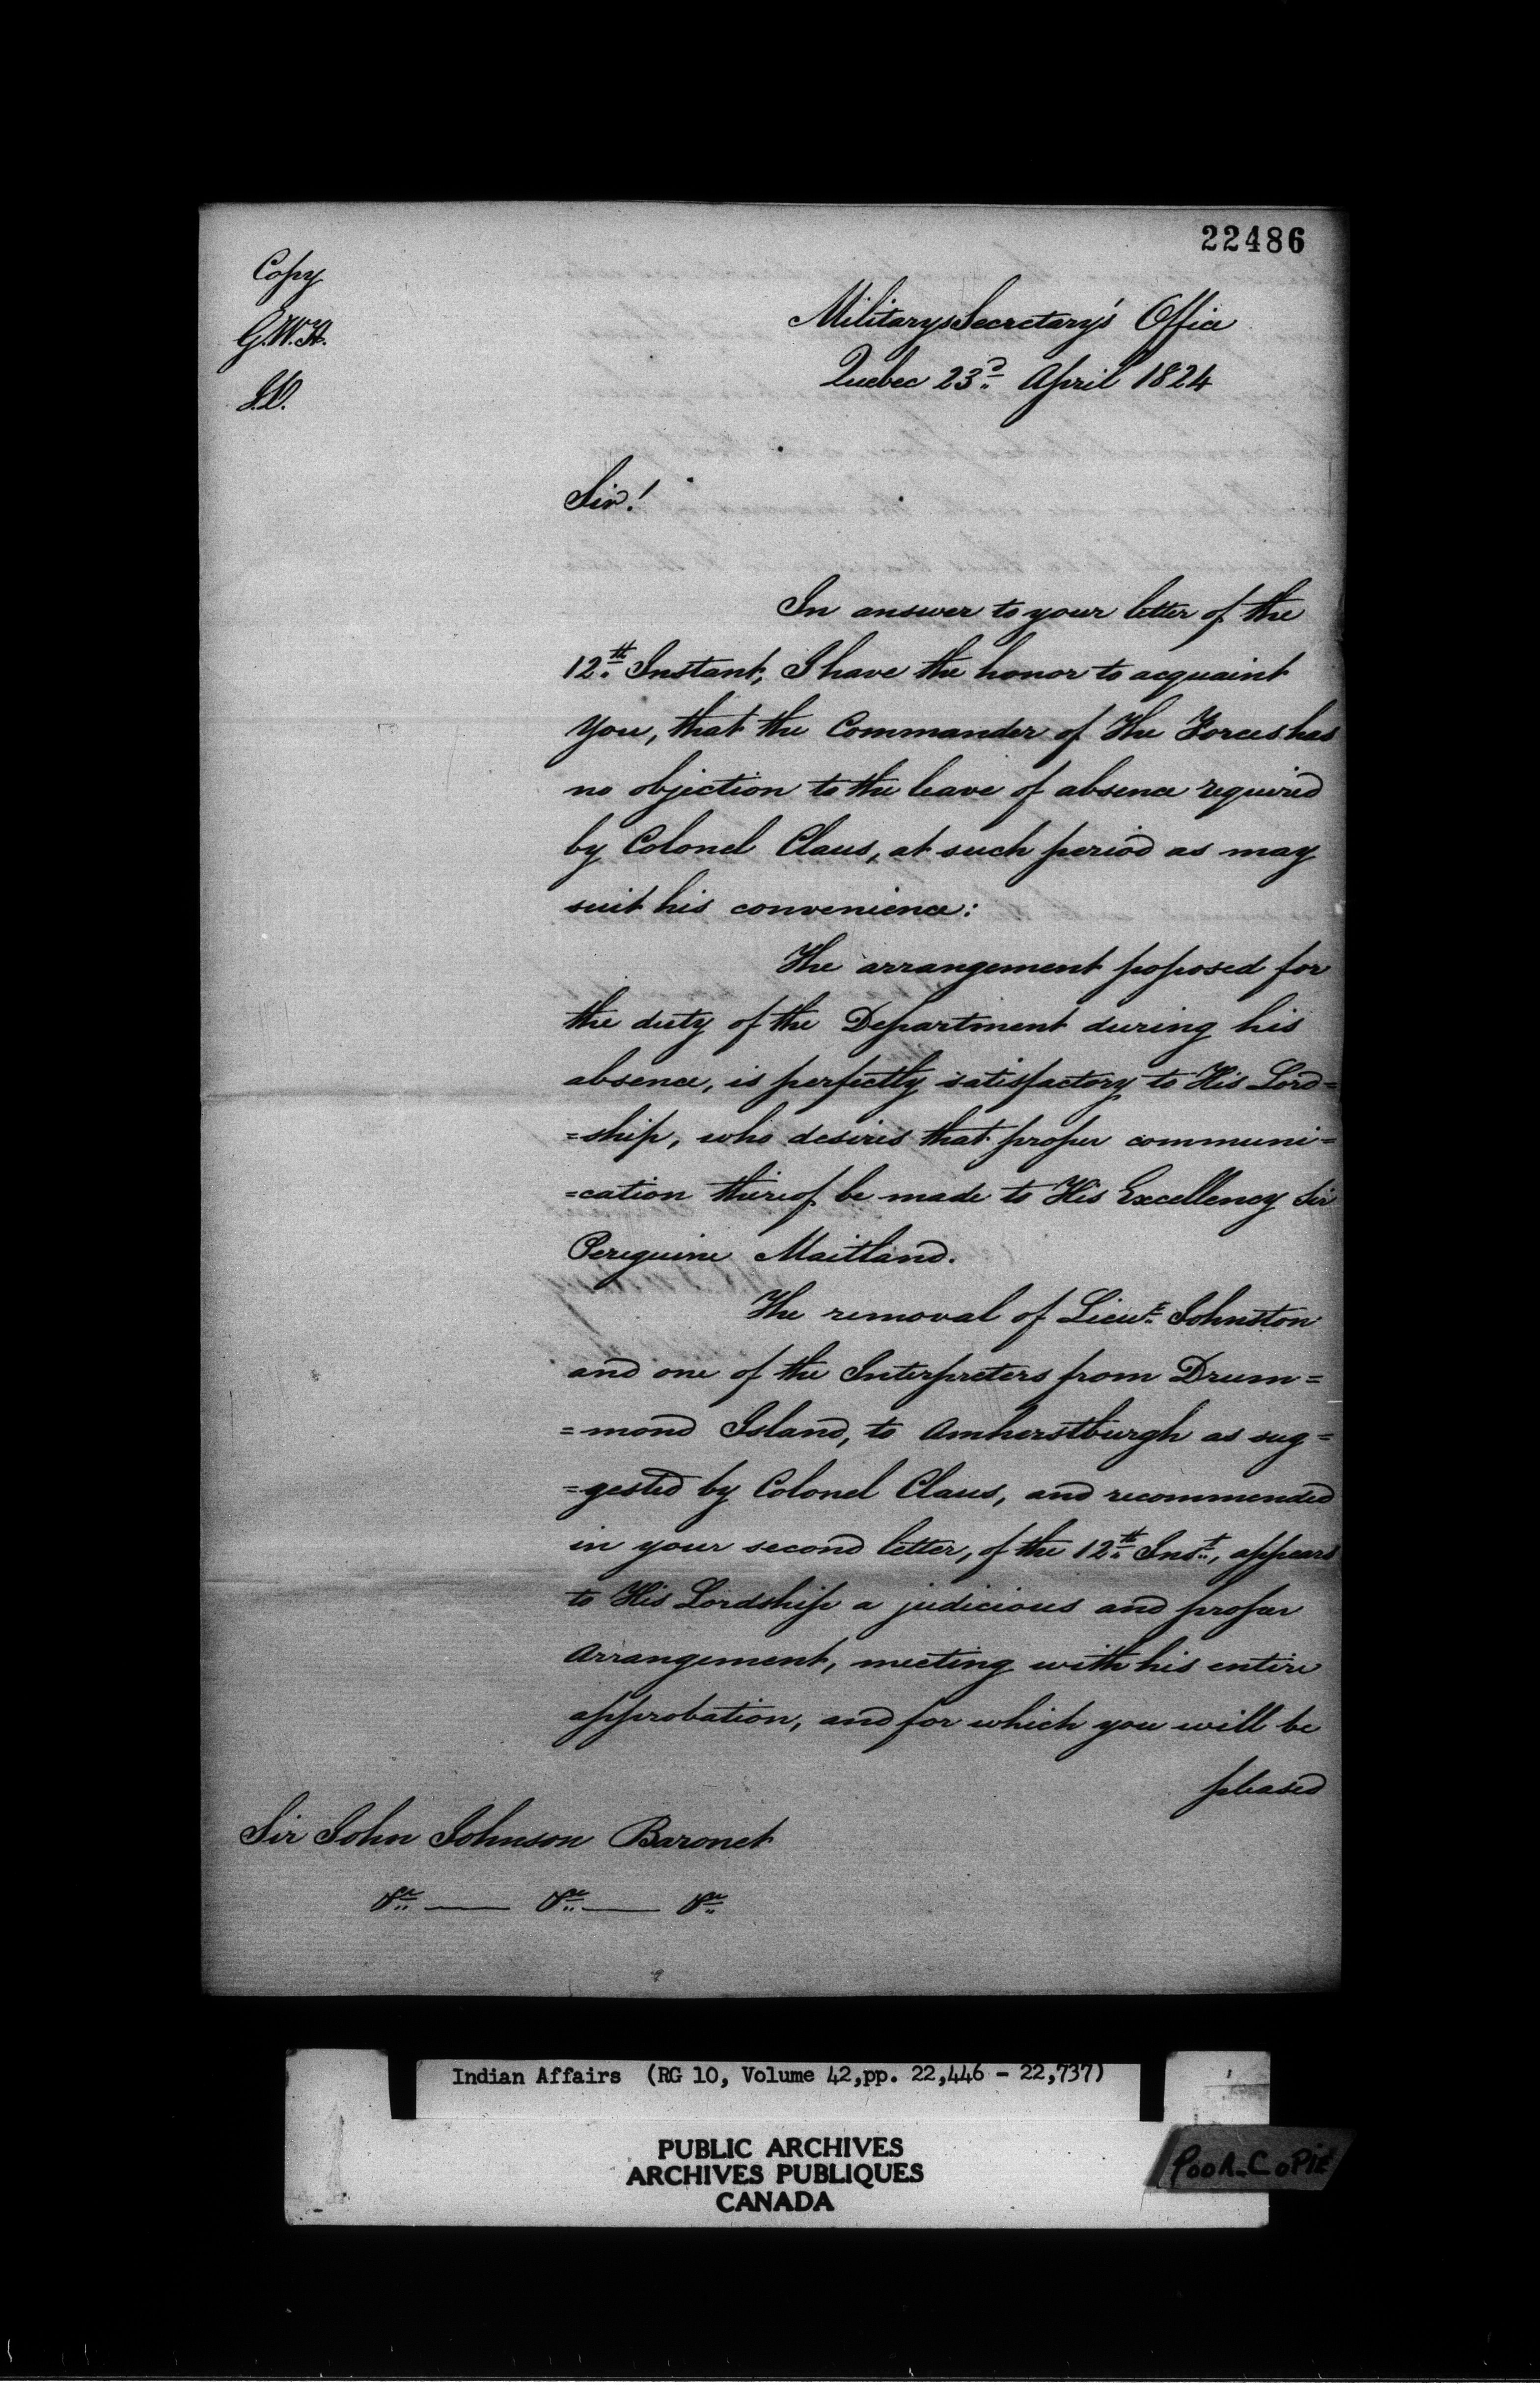 22486
Copy
G.W.H.
Military Secretary's Office
Quebec 23d April 1824
Sir!
In answer to your letter of the
12th Instant, I have the honor to acquaint
You, that the Commander of The Forces has
no objection to the leave of absence required
by Colonel Claus, at such period as may
suit his convenience:
The arrangement poposed for
the duty of the Department during his
absence, is perfectly satisfactory to His Lord=
=ship, who desires that proper communi=
=cation thereof be made to His Excellency Sir
Pereguine Maitland.
The removal of Lieut. Johnston
and one of the Interpreters from Drum=
=mond Island, to Amherstburgh as sug=
=gested by Colonel Claus, and recommended
in your second letter, of the 12th Inst., appears
to His Lordship a judicious and proper
Arrangement, meeting with his entire
approbation, and for which you will be
pleased
Sir John Johnson Baronet
&c — &c — &c
Indian Affairs (RG 10, Volume 42, pp. 22,446 - 22,737)
PUBLIC ARCHIVES
ARCHIVES PUBLIQUES
CANADA
POOR COPIE